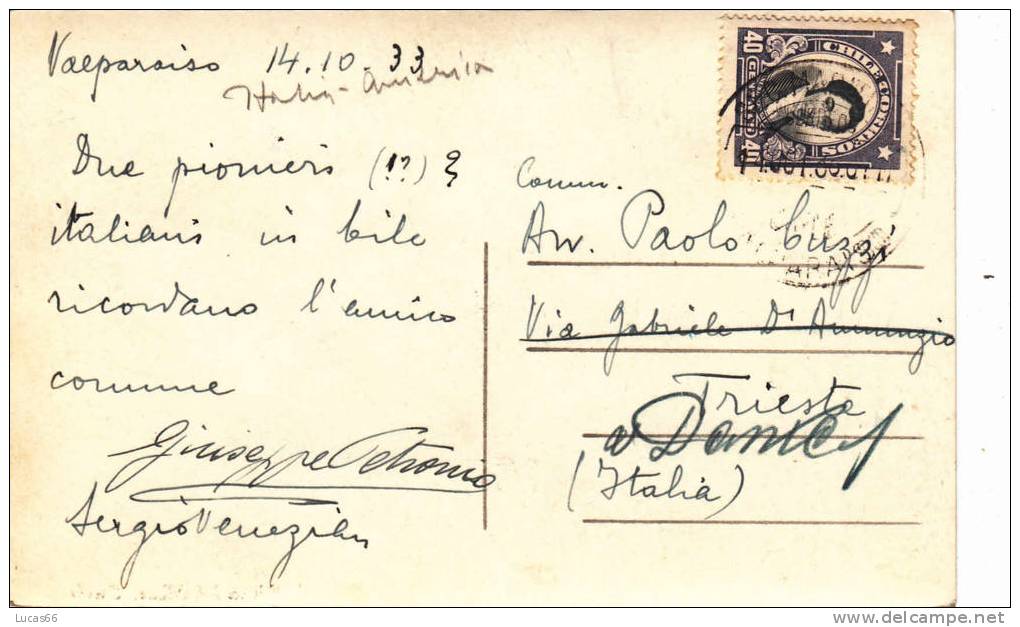 Valparaiso 14.10.33
Italia-America
Due pionieri (!?)
italiani in bile
ricordano l'amico
comune
Giuseppe Petronio
Sergio Venezian
Comm.
Avv. Paolo
Via Gabriele D'Annunzio
Trieste
(Italia)
CHILE CORREOS
40 40
Lucas66
delcampe.net